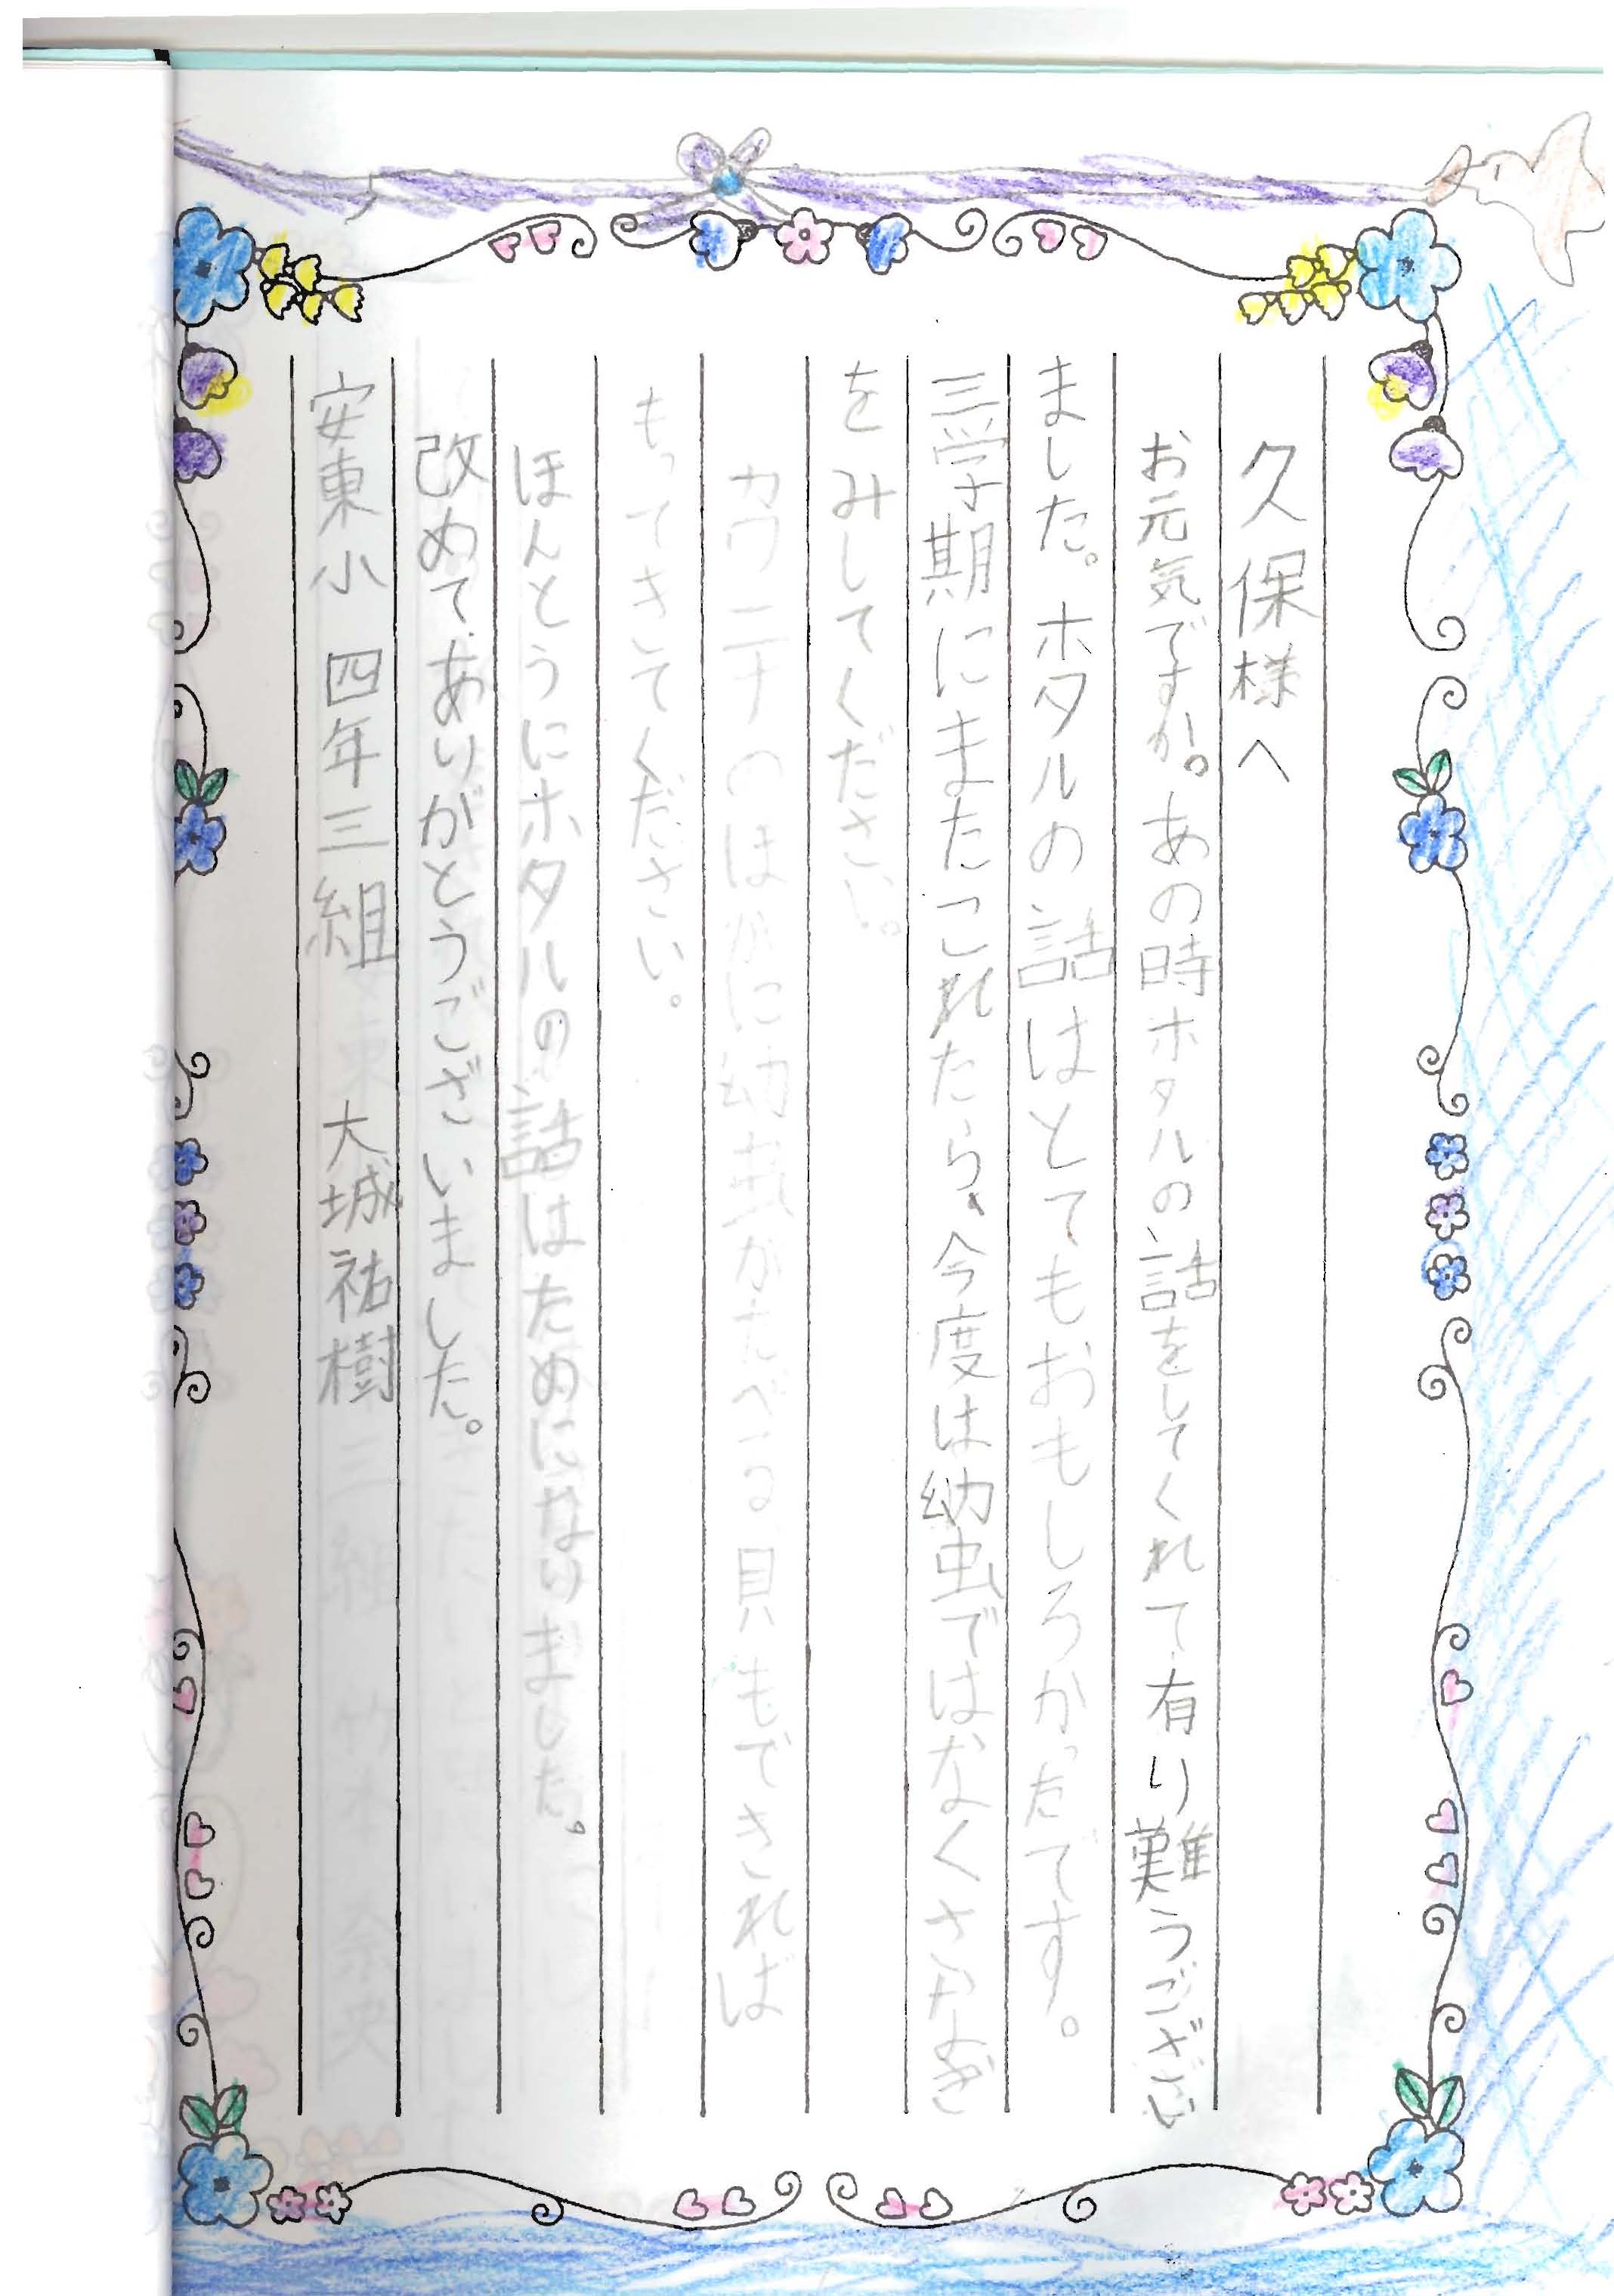 久保様へ
お元気ですか。あの時ホタルの話をしてくれて有り難うござい
ました。ホタルの話はとてもおもしろかったです。
三学期にまたこれたら、今度は幼虫ではなくさなぎ
をみしてください。
カワニナのほかに幼虫がたべる貝もできれば
もってきてください。
ほんとうにホタルの話はためになりました。
改めてありがとうございました。
安東小 四年三組 大城祐樹